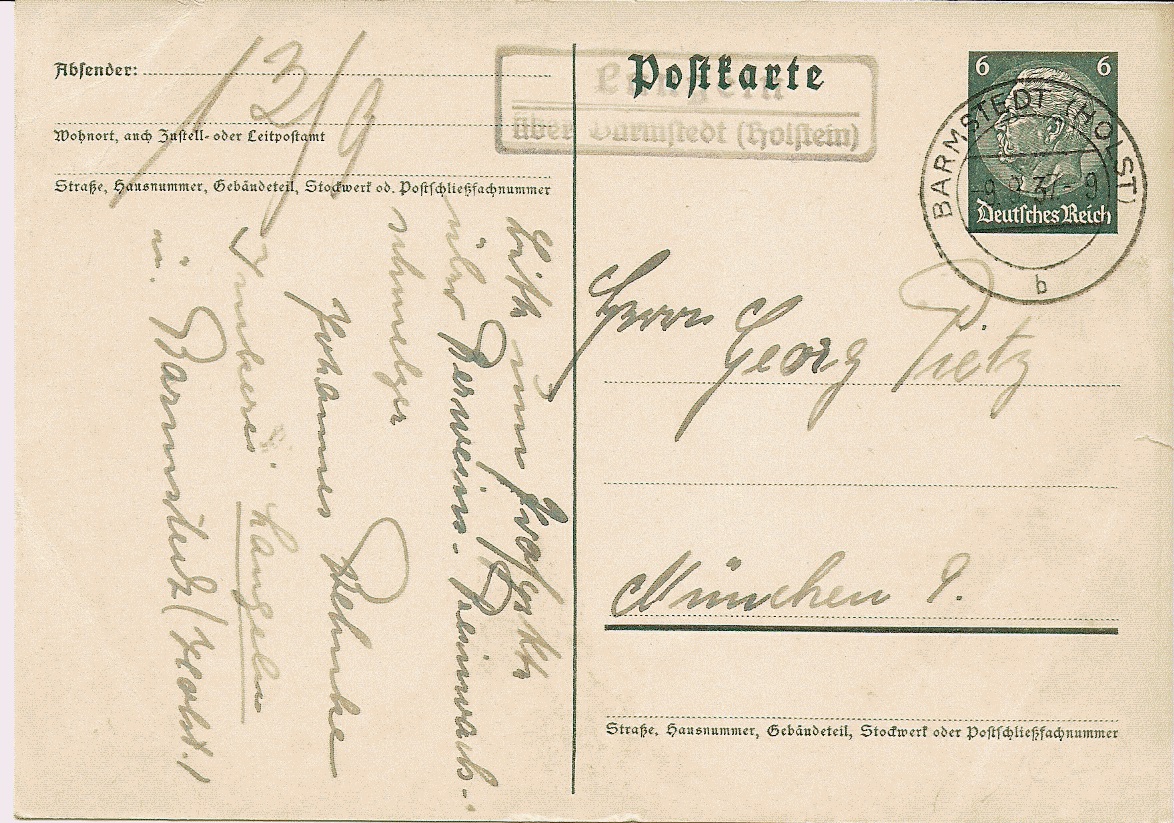 Absender:
Wohnort, auch Zustell- oder Leitpostamt
Straße, Hausnummer, Gebäudeteil, Stockwerk od. Postschließfachnummer
13/9
Postkarte
Langeln
über Barmstedt (Holstein)
6 6
Deutsches Reich
BARMSTEDT (HOLST)
-9.9.37.-9
b
Herrn Georg Pietz
München 9.
Straße, Hausnummer, Gebäudeteil, Stockwerk oder Postschließfachnummer
Bitte um Prospekte
über
Johannes Rehmke
Imkerei Langeln
ü. Barmstedt (Holst.)